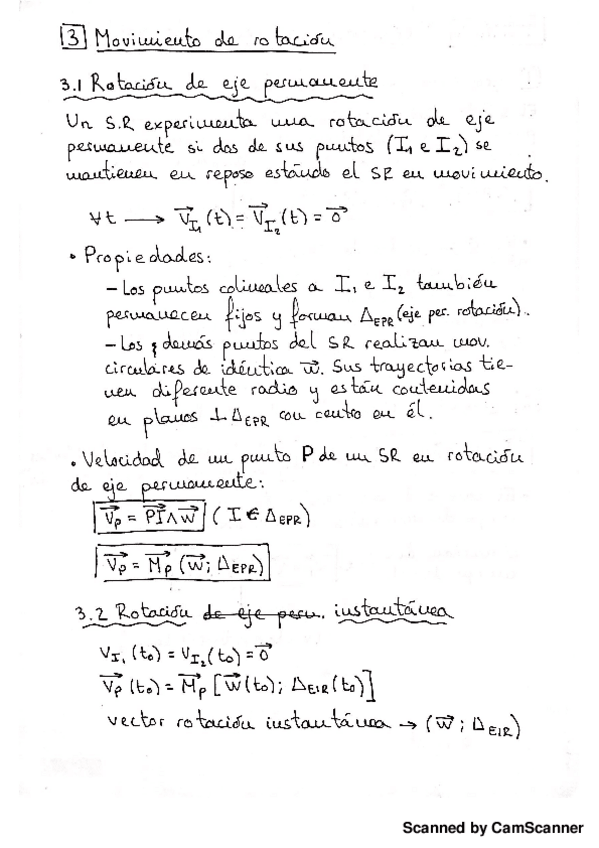 3 Movimiento de rotación
3.1 Rotación de eje permanente
Un S.R experimenta una rotación de eje
permanente si dos de sus puntos (I₁ e I₂) se
mantienen en reposo estando el SR en movimiento.
∀t ⟶ V⃗_I₁(t) = V⃗_I₂(t) = 0⃗
• Propiedades:
- Los puntos colineales a I₁ e I₂ también
permanecen fijos y forman Δ_EPR (eje per. rotación).
- Los demás puntos del SR realizan mov.
circulares de idéntica w⃗. Sus trayectorias tie-
nen diferente radio y están contenidas
en planos ⊥ Δ_EPR con centro en él.
• Velocidad de un punto P de un SR en rotación
de eje permanente:
V⃗_P = P⃗I⃗ ∧ w⃗ ( I ∈ Δ_EPR)
V⃗_P = M⃗_P (w⃗; Δ_EPR)
3.2 Rotación de eje perm. instantánea
V_I₁(t₀) = V_I₂(t₀) = 0⃗
V⃗_P (t₀) = M⃗_P [w⃗(t₀); Δ_EIR(t₀)]
vector rotación instantánea → (w⃗; Δ_EIR)
Scanned by CamScanner